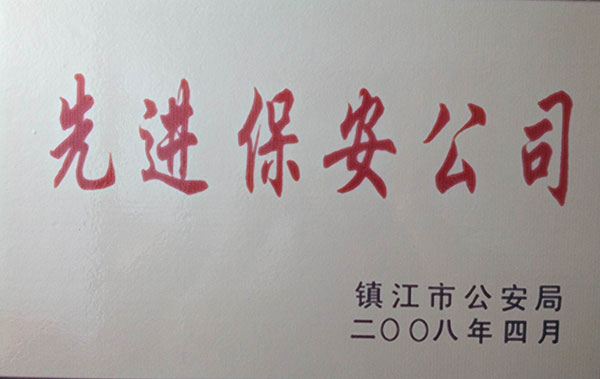 先进保安公司
镇江市公安局
二〇〇八年四月